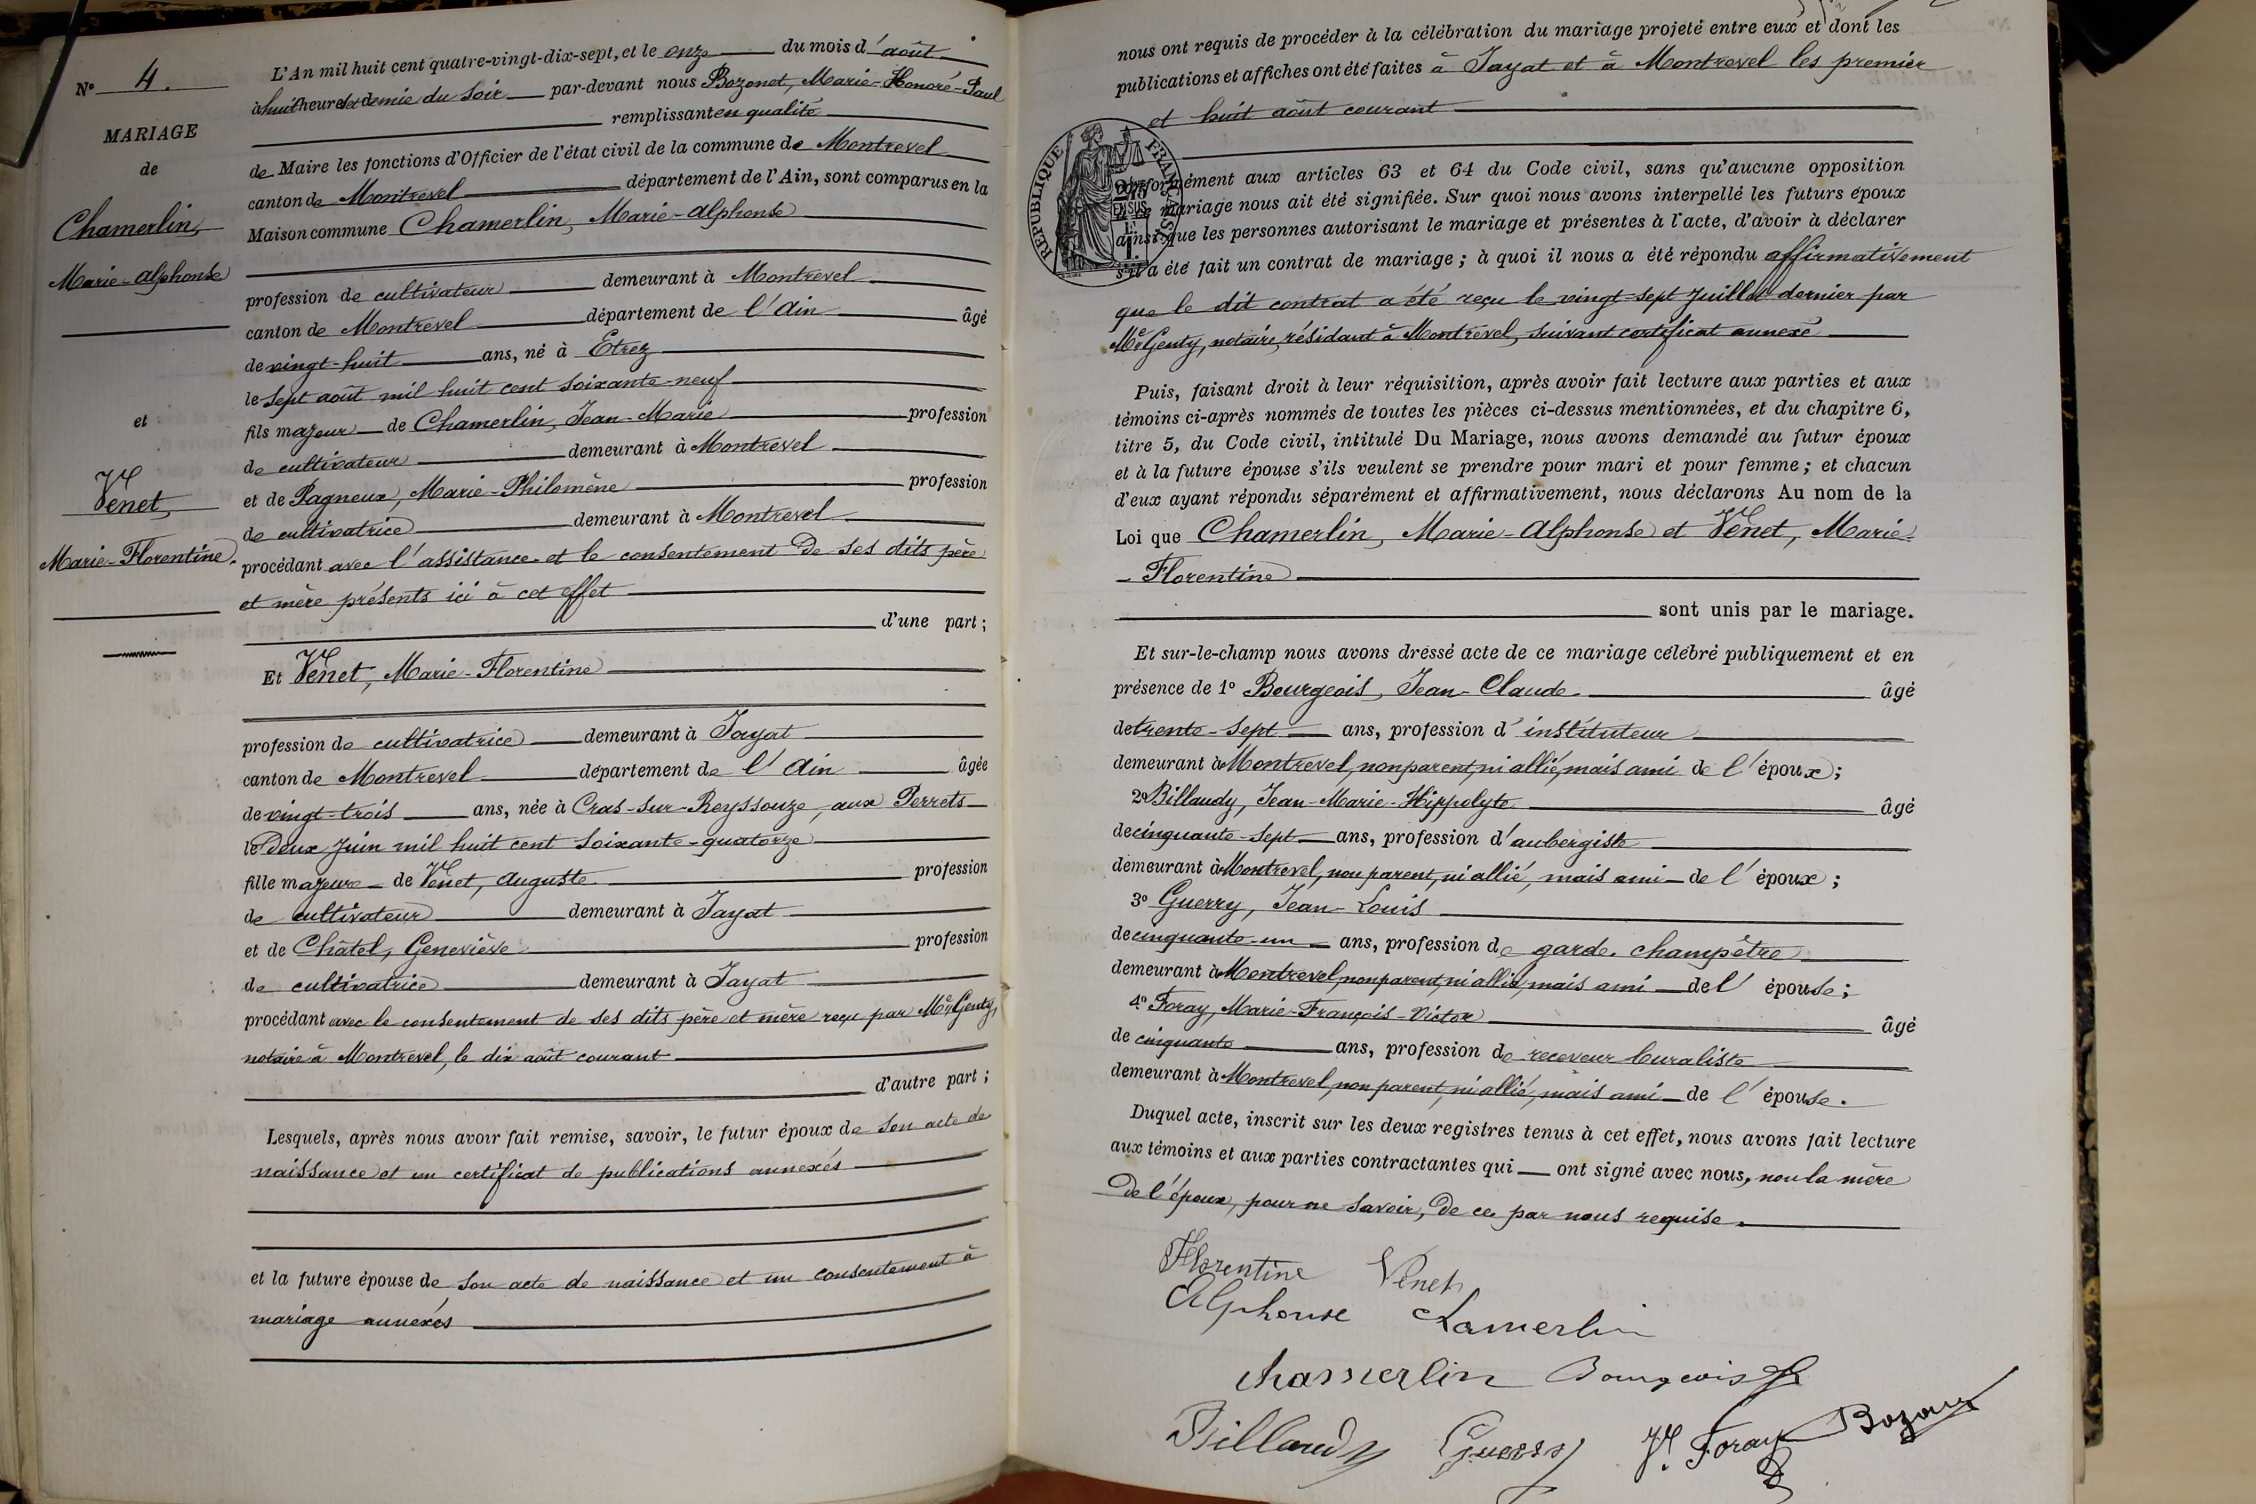 N° 4.
MARIAGE
de
Chamerlin,
Marie-Alphonse
et
Venet,
Marie-Florentine.
L'An mil huit cent quatre-vingt-dix-sept, et le onze du mois d'août
à huit heures et demie du soir par-devant nous Bozonet, Marie-Honoré-Paul
remplissant en qualité
de Maire les fonctions d'Officier de l'état civil de la commune de Montrevel
canton de Montrevel département de l'Ain, sont comparus en la
Maison commune Chamerlin, Marie-Alphonse
profession de cultivateur demeurant à Montrevel
canton de Montrevel département de l'Ain âgé
de vingt-huit ans, né à Etrez
le sept août mil huit cent soixante-neuf
fils majeur de Chamerlin, Jean-Marie profession
de cultivateur demeurant à Montrevel
et de Pagneux, Marie-Philomène profession
de cultivatrice demeurant à Montrevel
procédant avec l'assistance et le consentement de ses dits père
et mère présents ici à cet effet
d'une part;
Et Venet, Marie-Florentine
profession de cultivatrice demeurant à Jayat
canton de Montrevel département de l'Ain âgée
de vingt-trois ans, née à Cras-sur-Reyssouze, aux Perrets
le deux Juin mil huit cent soixante-quatorze
fille majeure de Venet, Auguste profession
de cultivateur demeurant à Jayat
et de Châtel, Geneviève profession
de cultivatrice demeurant à Jayat
procédant avec le consentement de ses dits père et mère reçu par Me Genty,
notaire à Montrevel, le dix août courant
d'autre part;
Lesquels, après nous avoir fait remise, savoir, le futur époux de son acte de
naissance et un certificat de publications annexés
et la future épouse de son acte de naissance et un consentement à
mariage annexés
nous ont requis de procéder à la célébration du mariage projeté entre eux et dont les
publications et affiches ont été faites à Jayat et à Montrevel les premier
et huit août courant
RÉPUBLIQUE FRANÇAISE
conformément aux articles 63 et 64 du Code civil, sans qu'aucune opposition
à ce mariage nous ait été signifiée. Sur quoi nous avons interpellé les futurs époux
ainsi que les personnes autorisant le mariage et présentes à l'acte, d'avoir à déclarer
s'il a été fait un contrat de mariage; à quoi il nous a été répondu affirmativement
que le dit contrat a été reçu le vingt-sept Juillet dernier par
Me Genty, notaire, résidant à Montrevel, suivant certificat annexé
Puis, faisant droit à leur réquisition, après avoir fait lecture aux parties et aux
témoins ci-après nommés de toutes les pièces ci-dessus mentionnées, et du chapitre 6,
titre 5, du Code civil, intitulé Du Mariage, nous avons demandé au futur époux
et à la future épouse s'ils veulent se prendre pour mari et pour femme; et chacun
d'eux ayant répondu séparément et affirmativement, nous déclarons Au nom de la
Loi que Chamerlin, Marie-Alphonse et Venet, Marie-
-Florentine
sont unis par le mariage.
Et sur-le-champ nous avons dressé acte de ce mariage célébré publiquement et en
présence de 1° Bourgeois, Jean-Claude âgé
de trente-sept ans, profession d'instituteur
demeurant à Montrevel, non parent, ni allié, mais ami de l'époux;
2° Billaudy, Jean-Marie-Hippolyte âgé
de cinquante-sept ans, profession d'aubergiste
demeurant à Montrevel, non parent, ni allié, mais ami de l'époux;
3° Guerry, Jean-Louis
de cinquante-un ans, profession de garde-champêtre
demeurant à Montrevel, non parent, ni allié, mais ami de l'épouse;
4° Foray, Marie-François-Victor âgé
de cinquante ans, profession de receveur buraliste
demeurant à Montrevel, non parent, ni allié, mais ami de l'épouse.
Duquel acte, inscrit sur les deux registres tenus à cet effet, nous avons fait lecture
aux témoins et aux parties contractantes qui ont signé avec nous, non la mère
de l'époux, pour ne savoir, de ce par nous requise.
Florentine Venet
Alphonse Chamerlin
Chamerlin Bourgeois
Billaudy Guerry V. Foray Bozonet